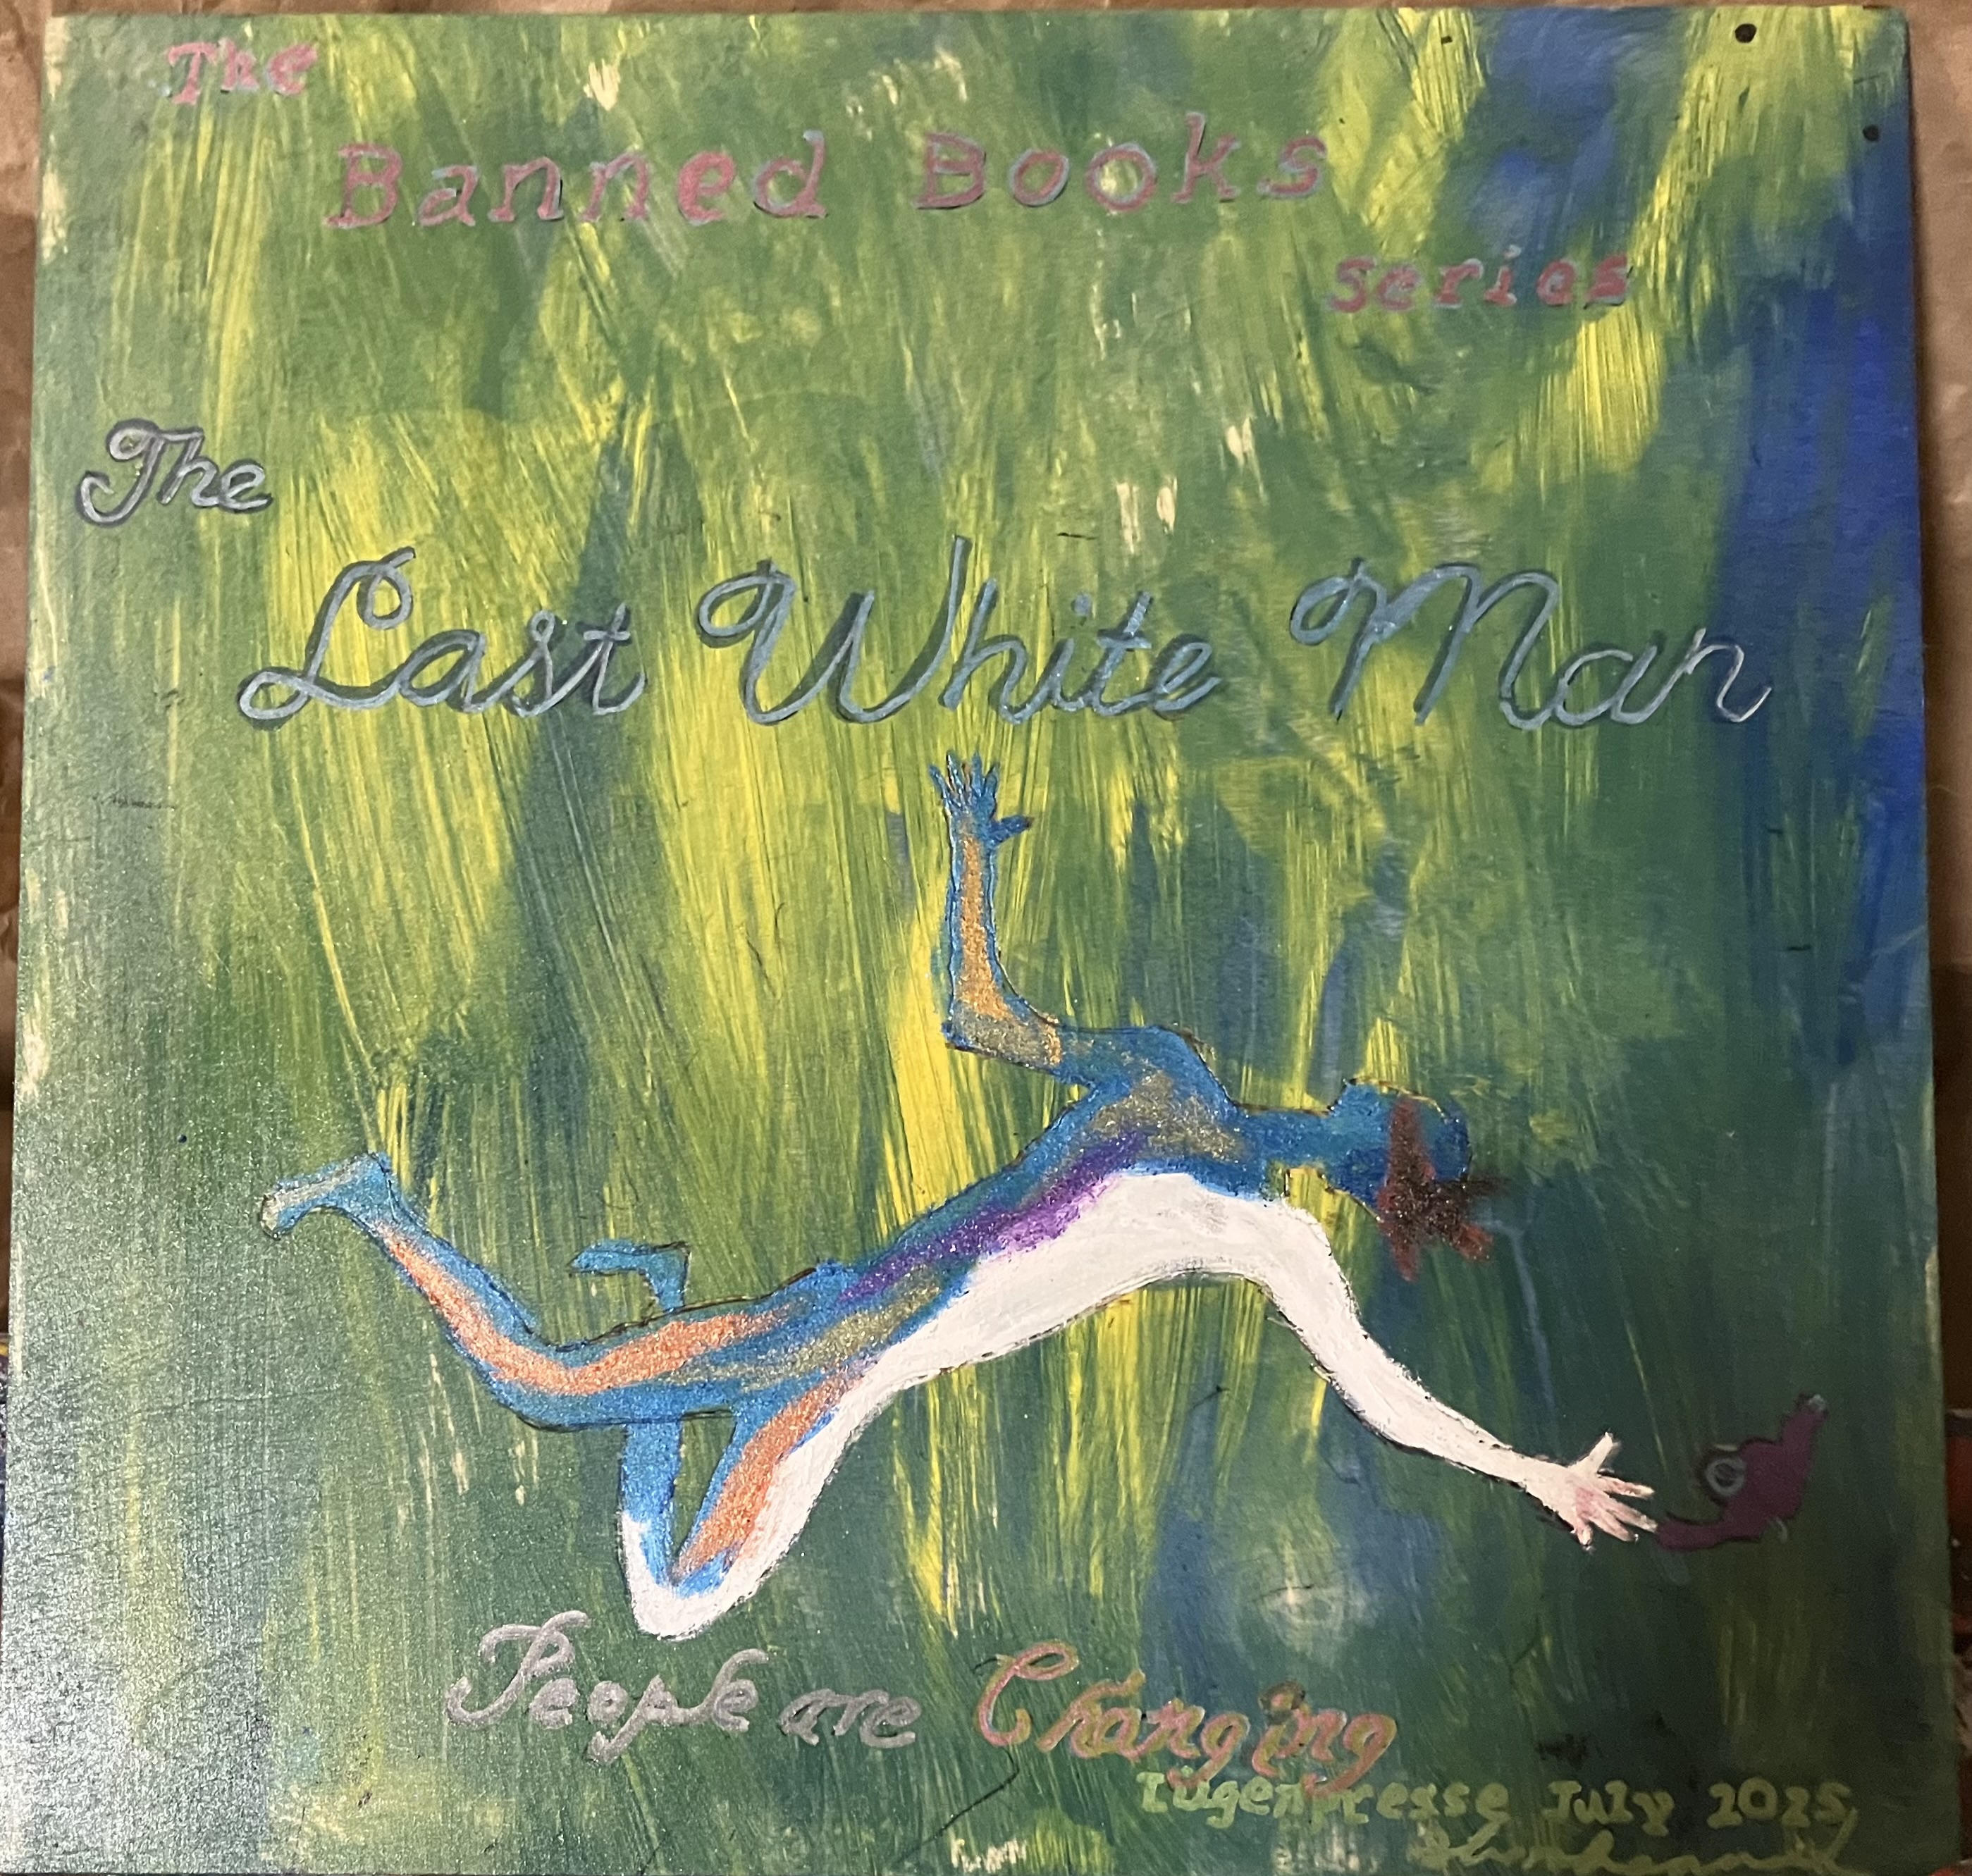 The
Banned Books
series
The
Last White Man
People are Changing
Lügenpresse July 2025